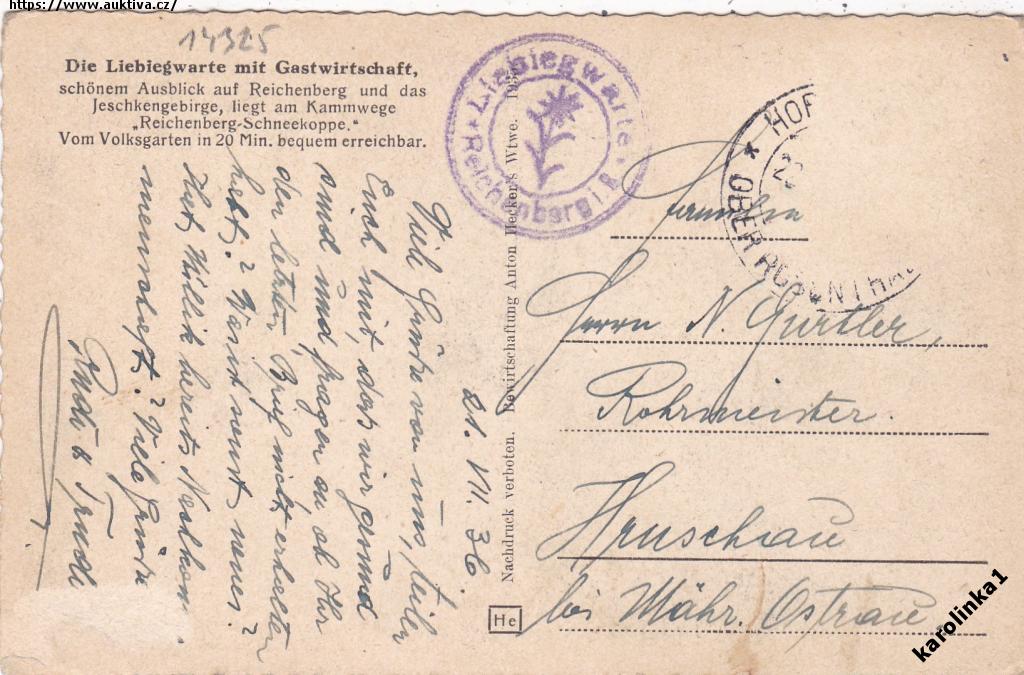 https://www.auktiva.cz/
14325
Die Liebiegwarte mit Gastwirtschaft,
schönem Ausblick auf Reichenberg und das
Jeschkengebirge, liegt am Kammwege
„Reichenberg-Schneekoppe.“
Vom Volksgarten in 20 Min. bequem erreichbar.
Liebiegwarte
Reichenberg i. B.
HOR
OBER ROSENTHA
Nachdruck verboten. Bewirtschaftung Anton Hecker's Wtwe. 193
He
21. VII. 36
Viele Grüße von uns, teilen
Euch mit, daß wir gesund
sind und fragen an ob Ihr
den letzten Brief nicht erhalten
habt? Wisst sonst neues?
Hat Willik bereits Nachkom-
menschaft? Viele Grüße
Rudi & Trude
Familie
Herrn N. Gürtler,
Rohrmeister.
Hruschau
bei Mähr. Ostrau.
karolinka1